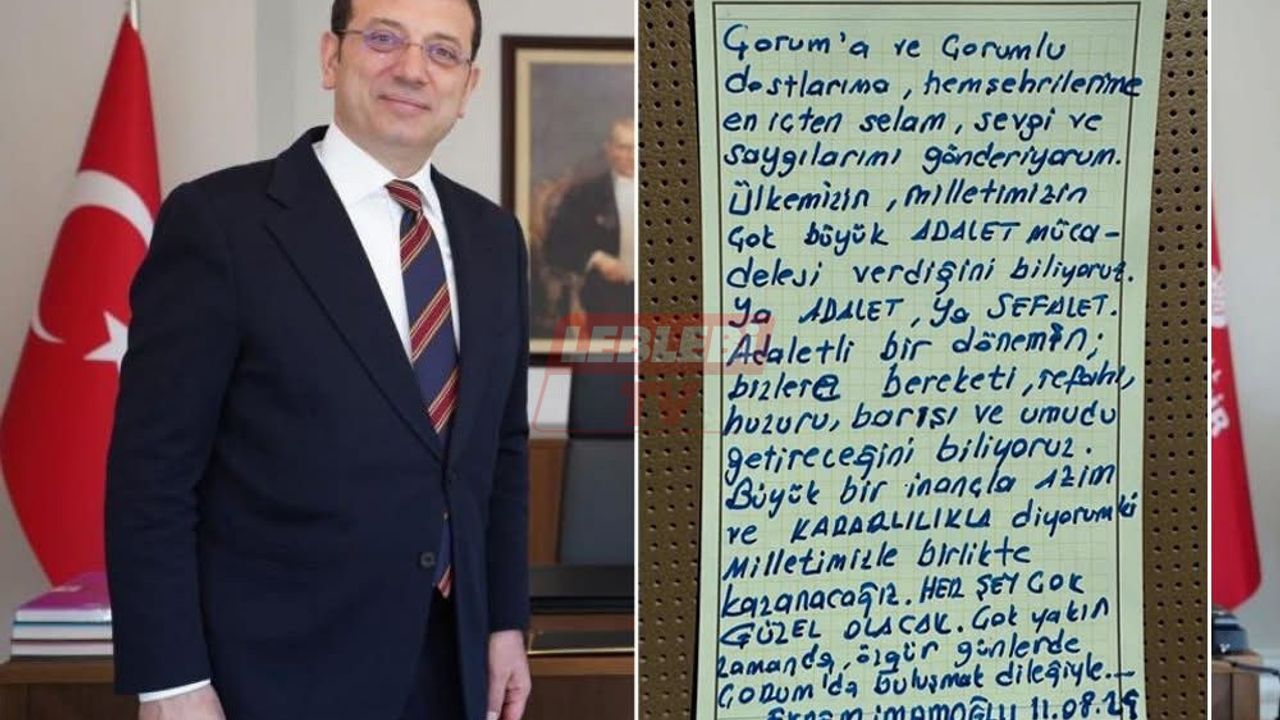 Çorum'a ve Çorumlu
dostlarıma, hemşehrilerime
en içten selam, sevgi ve
saygılarımı gönderiyorum.
Ülkemizin, milletimizin
Çok büyük ADALET müca-
delesi verdiğini biliyoruz.
Ya ADALET, Ya SEFALET.
Adaletli bir dönemin;
bizlere bereketi, refahı,
huzuru, barışı ve umudu
getireceğini biliyoruz.
Büyük bir inançla AZİM
ve KARARLILIKLA diyorum ki
Milletimizle birlikte
kazanacağız. HER ŞEY ÇOK
GÜZEL OLACAK. Çok yakın
zamanda, özgür günlerde
ÇORUM'da buluşmak dileğiyle...
EKREM İMAMOĞLU 11.08.25
LEBLEBİ
TV